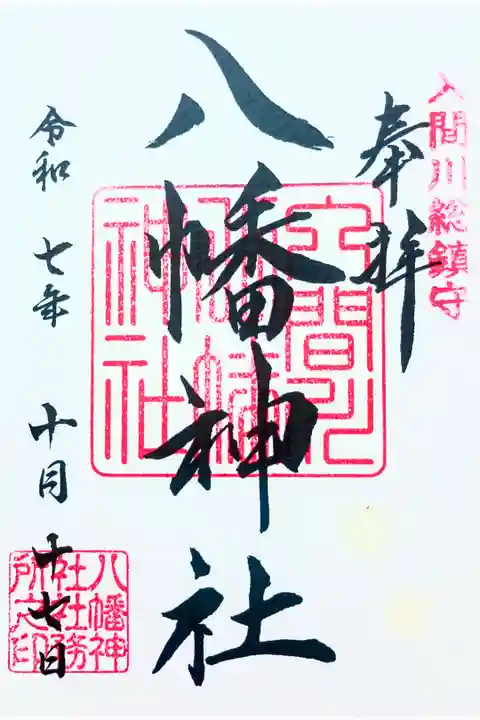 入間川総鎮守
奉拝
八幡神社
令和七年十月十七日
八幡神
社社務
所之印